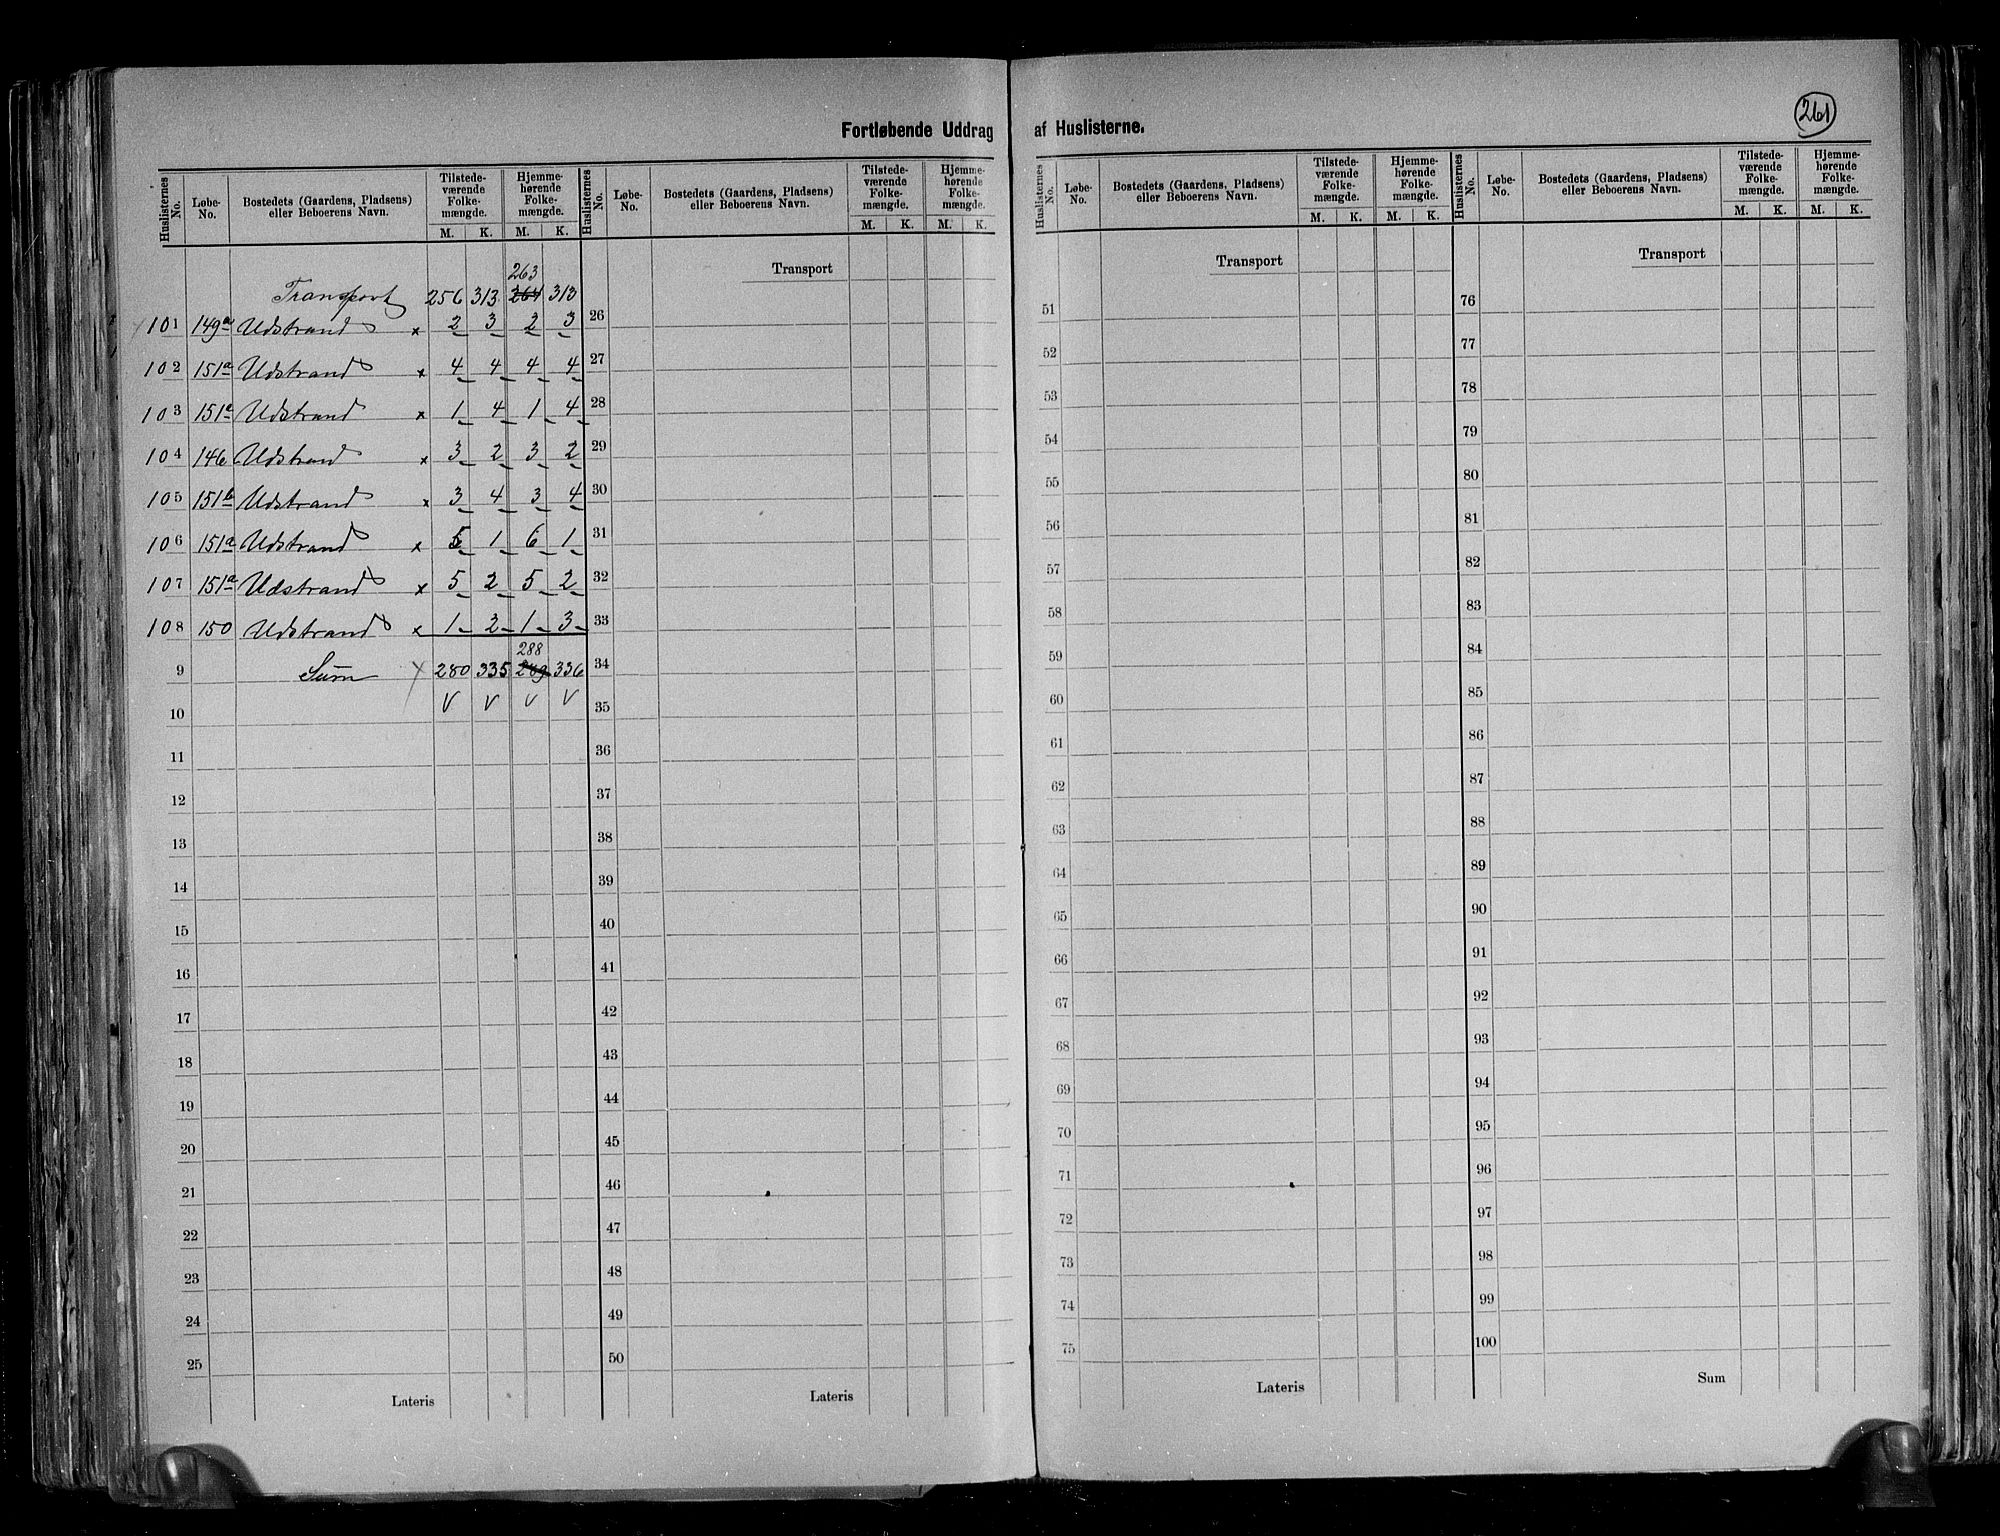 261
Fortløbende Uddrag af Huslisterne.
Huslisternes No. | Løbe-No. | Bostedets (Gaardens, Pladsens) eller Beboerens Navn. | Tilstede-værende Folke-mængde. M. K. | Hjemme-hørende Folke-mængde. M. K.
Huslisternes No. | Løbe-No. | Bostedets (Gaardens, Pladsens) eller Beboerens Navn. | Tilstede-værende Folke-mængde. M. K. | Hjemme-hørende Folke-mængde. M. K.
Huslisternes No. | Løbe-No. | Bostedets (Gaardens, Pladsens) eller Beboerens Navn. | Tilstede-værende Folke-mængde. M. K. | Hjemme-hørende Folke-mængde. M. K.
Huslisternes No. | Løbe-No. | Bostedets (Gaardens, Pladsens) eller Beboerens Navn. | Tilstede-værende Folke-mængde. M. K. | Hjemme-hørende Folke-mængde. M. K.
263
Transport 256 313 264 313
101 149a Udstrand x 2 3 2 3
102 151a Udstrand x 4 4 4 4
103 151a Udstrand x 1 4 1 4
104 146 Udstrand x 3 2 3 2
105 151b Udstrand x 3 4 3 4
106 151a Udstrand x 5 1 6 1
107 151a Udstrand x 5 2 5 2
108 150 Udstrand x 1 2 1 3
288
9 Sum x 280 335 289 336
V V V V
10
11
12
13
14
15
16
17
18
19
20
21
22
23
24
25
Lateris
Transport
26
27
28
29
30
31
32
33
34
35
36
37
38
39
40
41
42
43
44
45
46
47
48
49
50
Lateris
Transport
51
52
53
54
55
56
57
58
59
60
61
62
63
64
65
66
67
68
69
70
71
72
73
74
75
Lateris
Transport
76
77
78
79
80
81
82
83
84
85
86
87
88
89
90
91
92
93
94
95
96
97
98
99
100
Sum